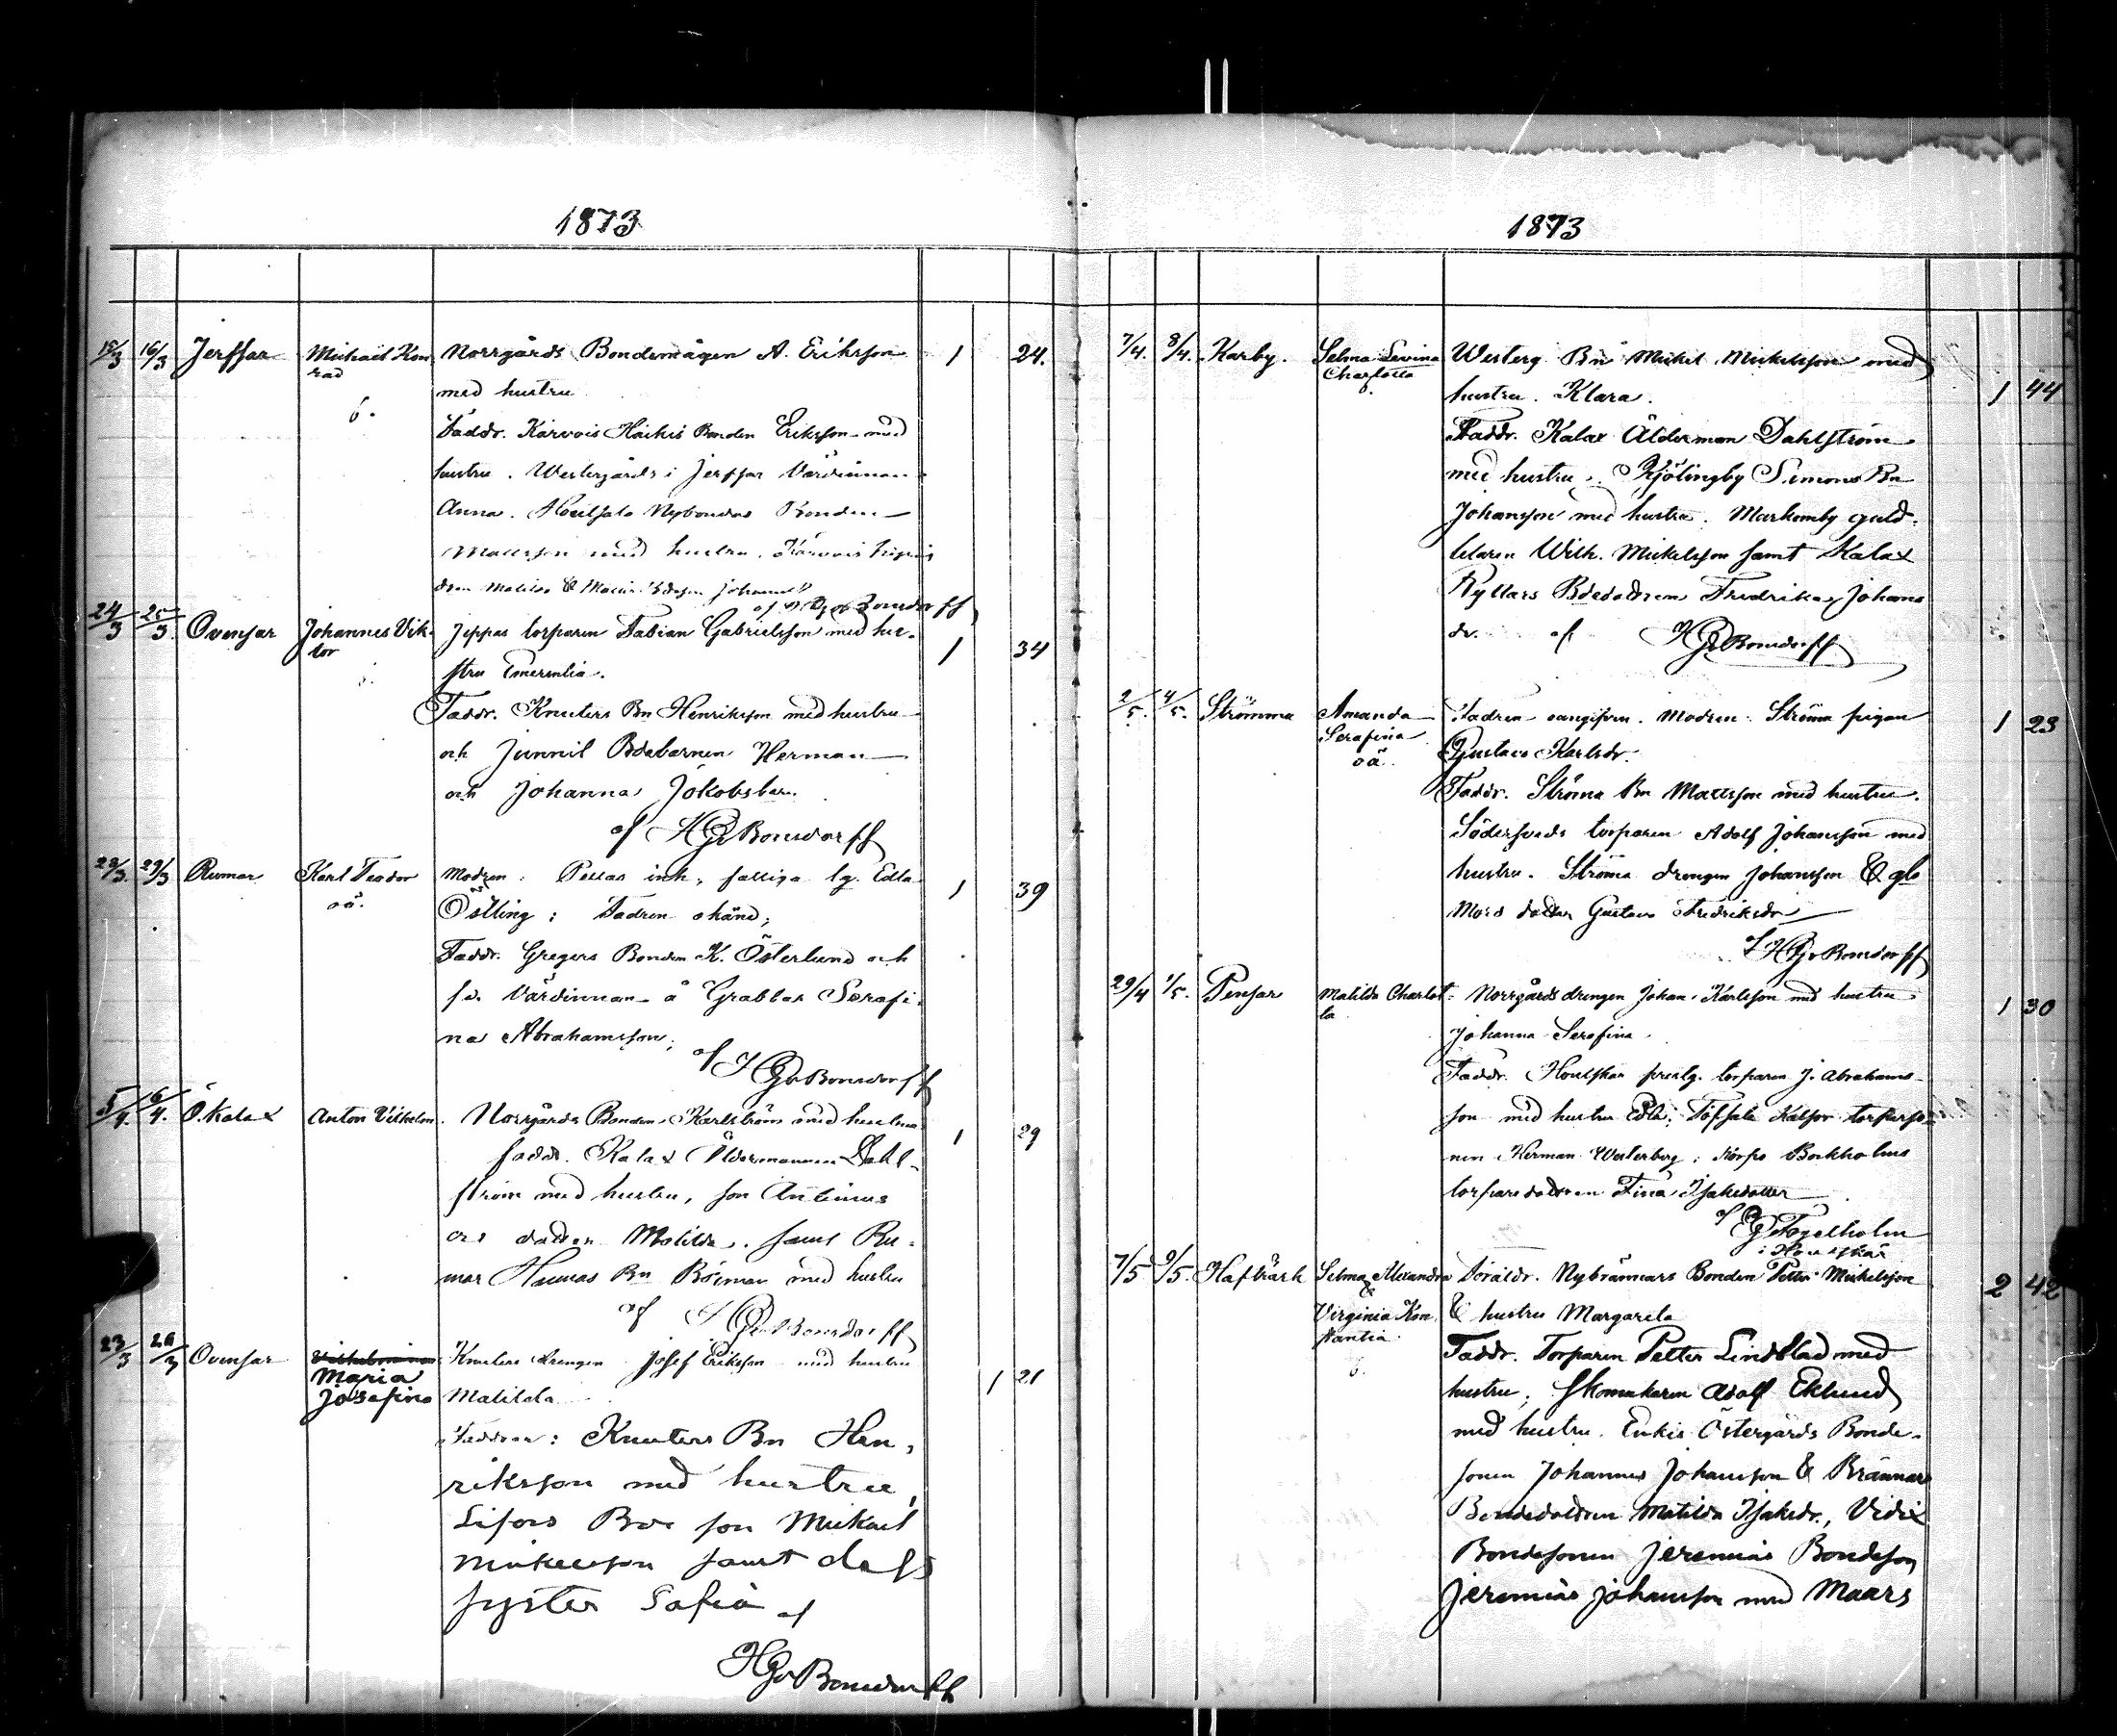 1873
15/3 16/3 Jerssar Michaël Kon Norrgårds Bondemågen A. Eriksson 1 24.
rad med hustru
b. Faddr. Kärvois Heikis Bonden Eriksson med
hustru. Westergårds i Jerssar Värdinnan
Anna. Houtsala Nybondas Bonden
Mattsson med hustru. Kärvois
Matilda & Johans
af Bonsdorff
24/3 25/3. Ovensar Johannes Vik- Jeppas torparen Fabian Gabrielsson med hu- 1 34
tor stru Emerentia.
Faddr. Knuters Bn Henriksson med hustru
och Junnil Bdebarnen Herman
och Johanna Jakobsbarn.
af HGvBonsdorff
28/3. 29/3 Rumar Karl Teodor Modren: Pellas inh. fattiga lg. Edla 1 39
oä. Östling; Fadren okänd;
Faddr. Gregers Bonden K. Österlund och
fd. Värdinnan å Grabbas Serafi-
na Abrahamsson;
af HGvBonsdorff
5/4. 6/4. Ö.Kalax Anton Vilhelm. Norrgårds Bonden Karlström med hustru 1 29
faddr. Kalax Åldermannen Dahl-
ström med hustru, son Antenius
och dottren Matilda. samt Ru-
mar Hannas Bn Böhman med hustru
af HGvBonsdorff
23/3 26/3 Ovensar Knuters drengen Josef Eriksson med hustru 1 21
Maria
Josefina Matilda
Faddrar: Knuters Bn Hen-
riksson med hustru,
Sifors Bde son Mickael
Mickelsson samt dess
syster Sofia af
HGvBonsdorff
1873
7/4. 8/4. Karby. Selma Levina Westerg. Bn Mickel Mickelsson med
Charlotta hustru. Klara. 1 44
Faddr. Kalax Ålderman Dahlström
med hustru. Kjölingby Simons Bn
Johansson med hustru. Markomby guld-
Wilh. Mickelsson samt Kalax
Nyllars Bdedottren Fredrika Johans
dr. af HGvBonsdorff
2/5. 4/5. Strömma Amanda Fadren oangifven. Modren: Ströma pigan 1 23
Serafina Gustava Karlsdr.
oä. Faddr. Ströma Bn Mattsson med hustru.
Södersunds torparen Adolf Johansson med
hustru. Ströma drengen Johansson &
Mors dotter Gustava Fredriksdr
af HGvBonsdorff
29/4 1/5. Pensar Matilda Charlot- Norrgårds drengen Johan Karlsson med hustru 1 30
ta Johanna Serafina.
Faddr. Houtskär prestg. torparen J. Abrahams-
son med hustru Edla; Töfsala Kalsor torparso-
nen Herman Westerberg; Korpo Borkholms
torparedottren Fina Isaksdotter
af EGFogelholm
i Houtskär
7/5 9/5. Hafträsk Selma Alexandra Föräldr. Nybrännars Bonden Petter Mickelsson 2 42
&
Virginia Kon- & hustru Margareta
stantia. Faddr. Torparen Petter Lindblad med
b. hustru; skomakaren Adolf Eklund
med hustru. Enkis Östergårds Bonde-
sonen Johannes Johansson & Brännars
Bondedottren Matilda Isaksdr., Vidix
Bondesonen Jeremias Bondeson
Jeremias Johansson med Maars